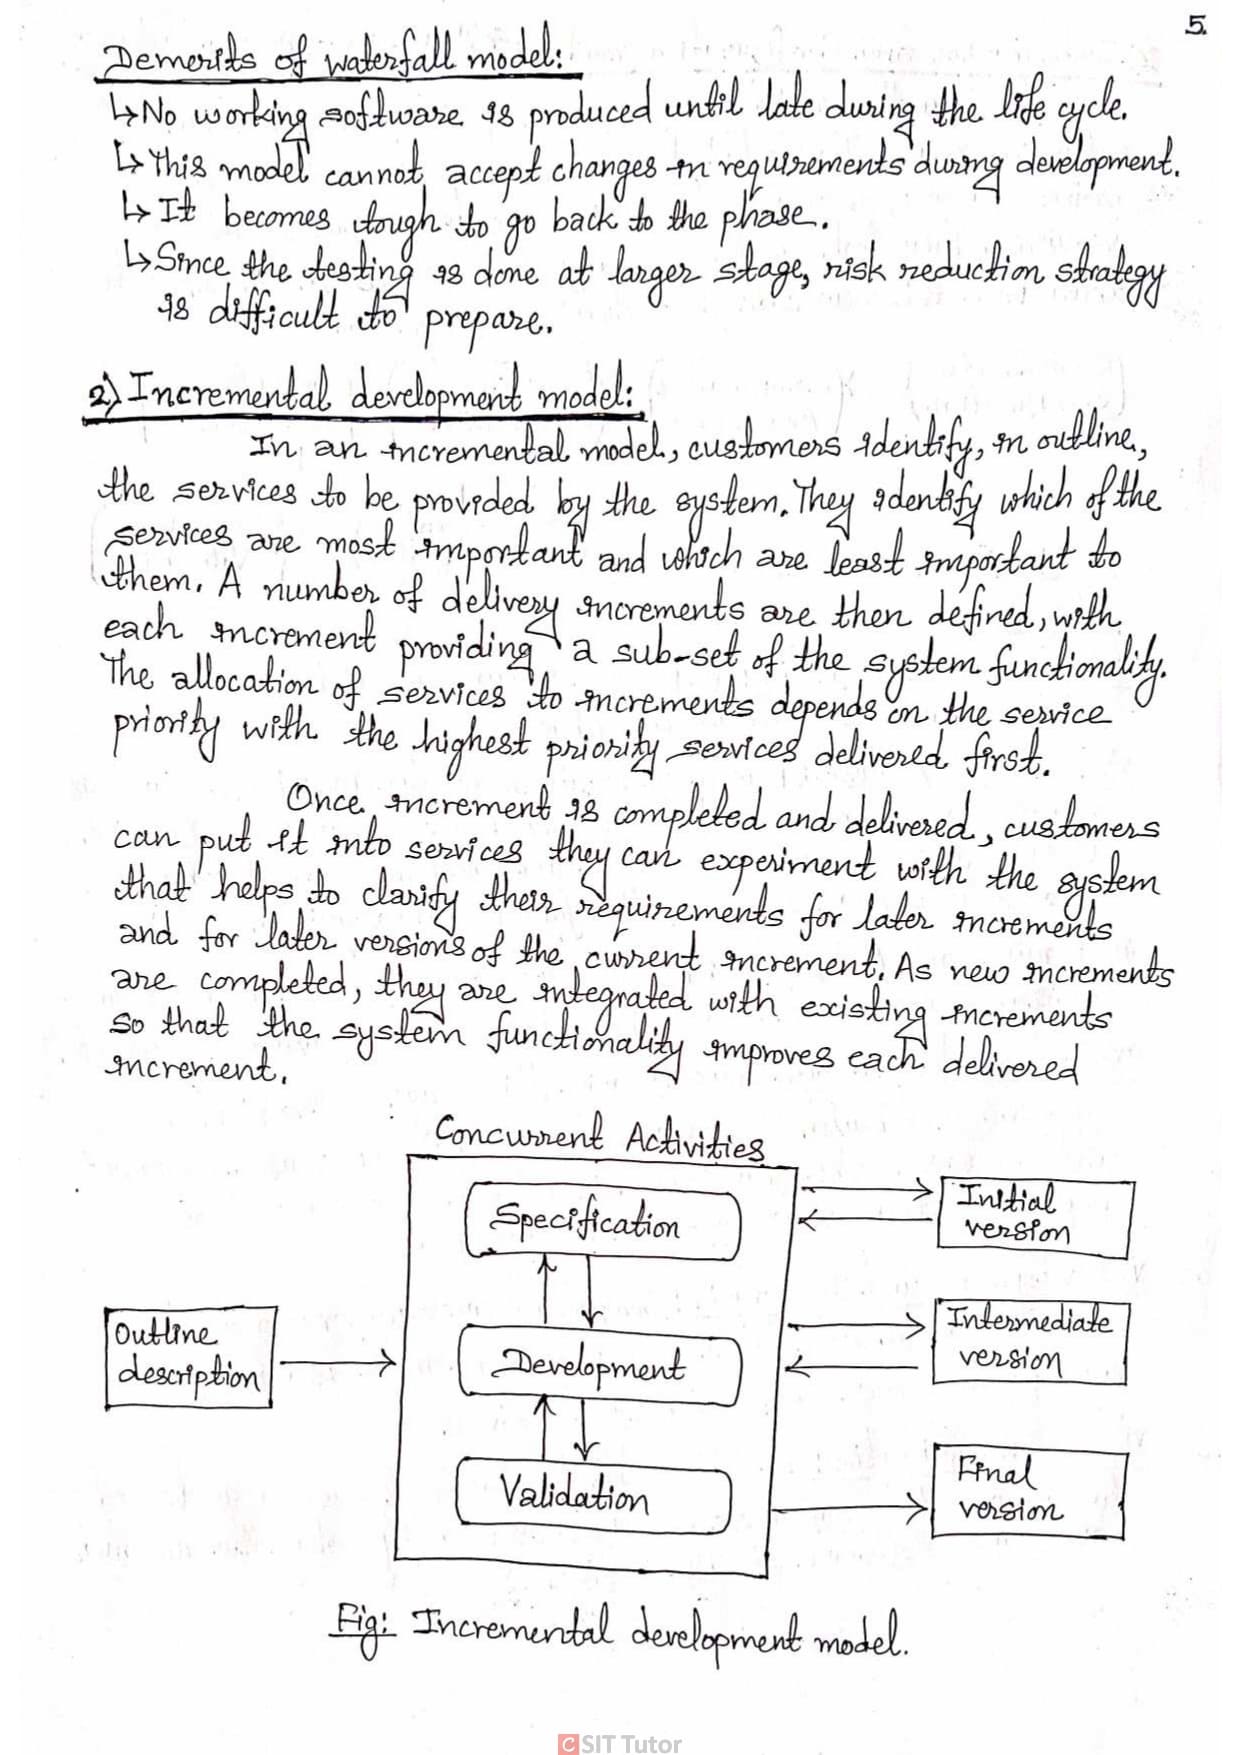 5.
Demerits of waterfall model:
↳No working software is produced until late during the life cycle.
↳This model cannot accept changes in requirements during development.
↳It becomes tough to go back to the phase.
↳Since the testing is done at larger stage, risk reduction strategy
is difficult to prepare.
2) Incremental development model:
In an incremental model, customers identify, in outline,
the services to be provided by the system. They identify which of the
services are most important and which are least important to
them. A number of delivery increments are then defined, with
each increment providing a sub-set of the system functionality.
The allocation of services to increments depends on the service
priority with the highest priority services delivered first.
Once increment is completed and delivered, customers
can put it into services they can experiment with the system
that helps to clarify their requirements for later increments
and for later versions of the current increment. As new increments
are completed, they are integrated with existing increments
so that the system functionality improves each delivered
increment.
Concurrent Activities
Specification
Initial
version
Outline
description
Development
Intermediate
version
Validation
Final
version
Fig: Incremental development model.
CSIT Tutor